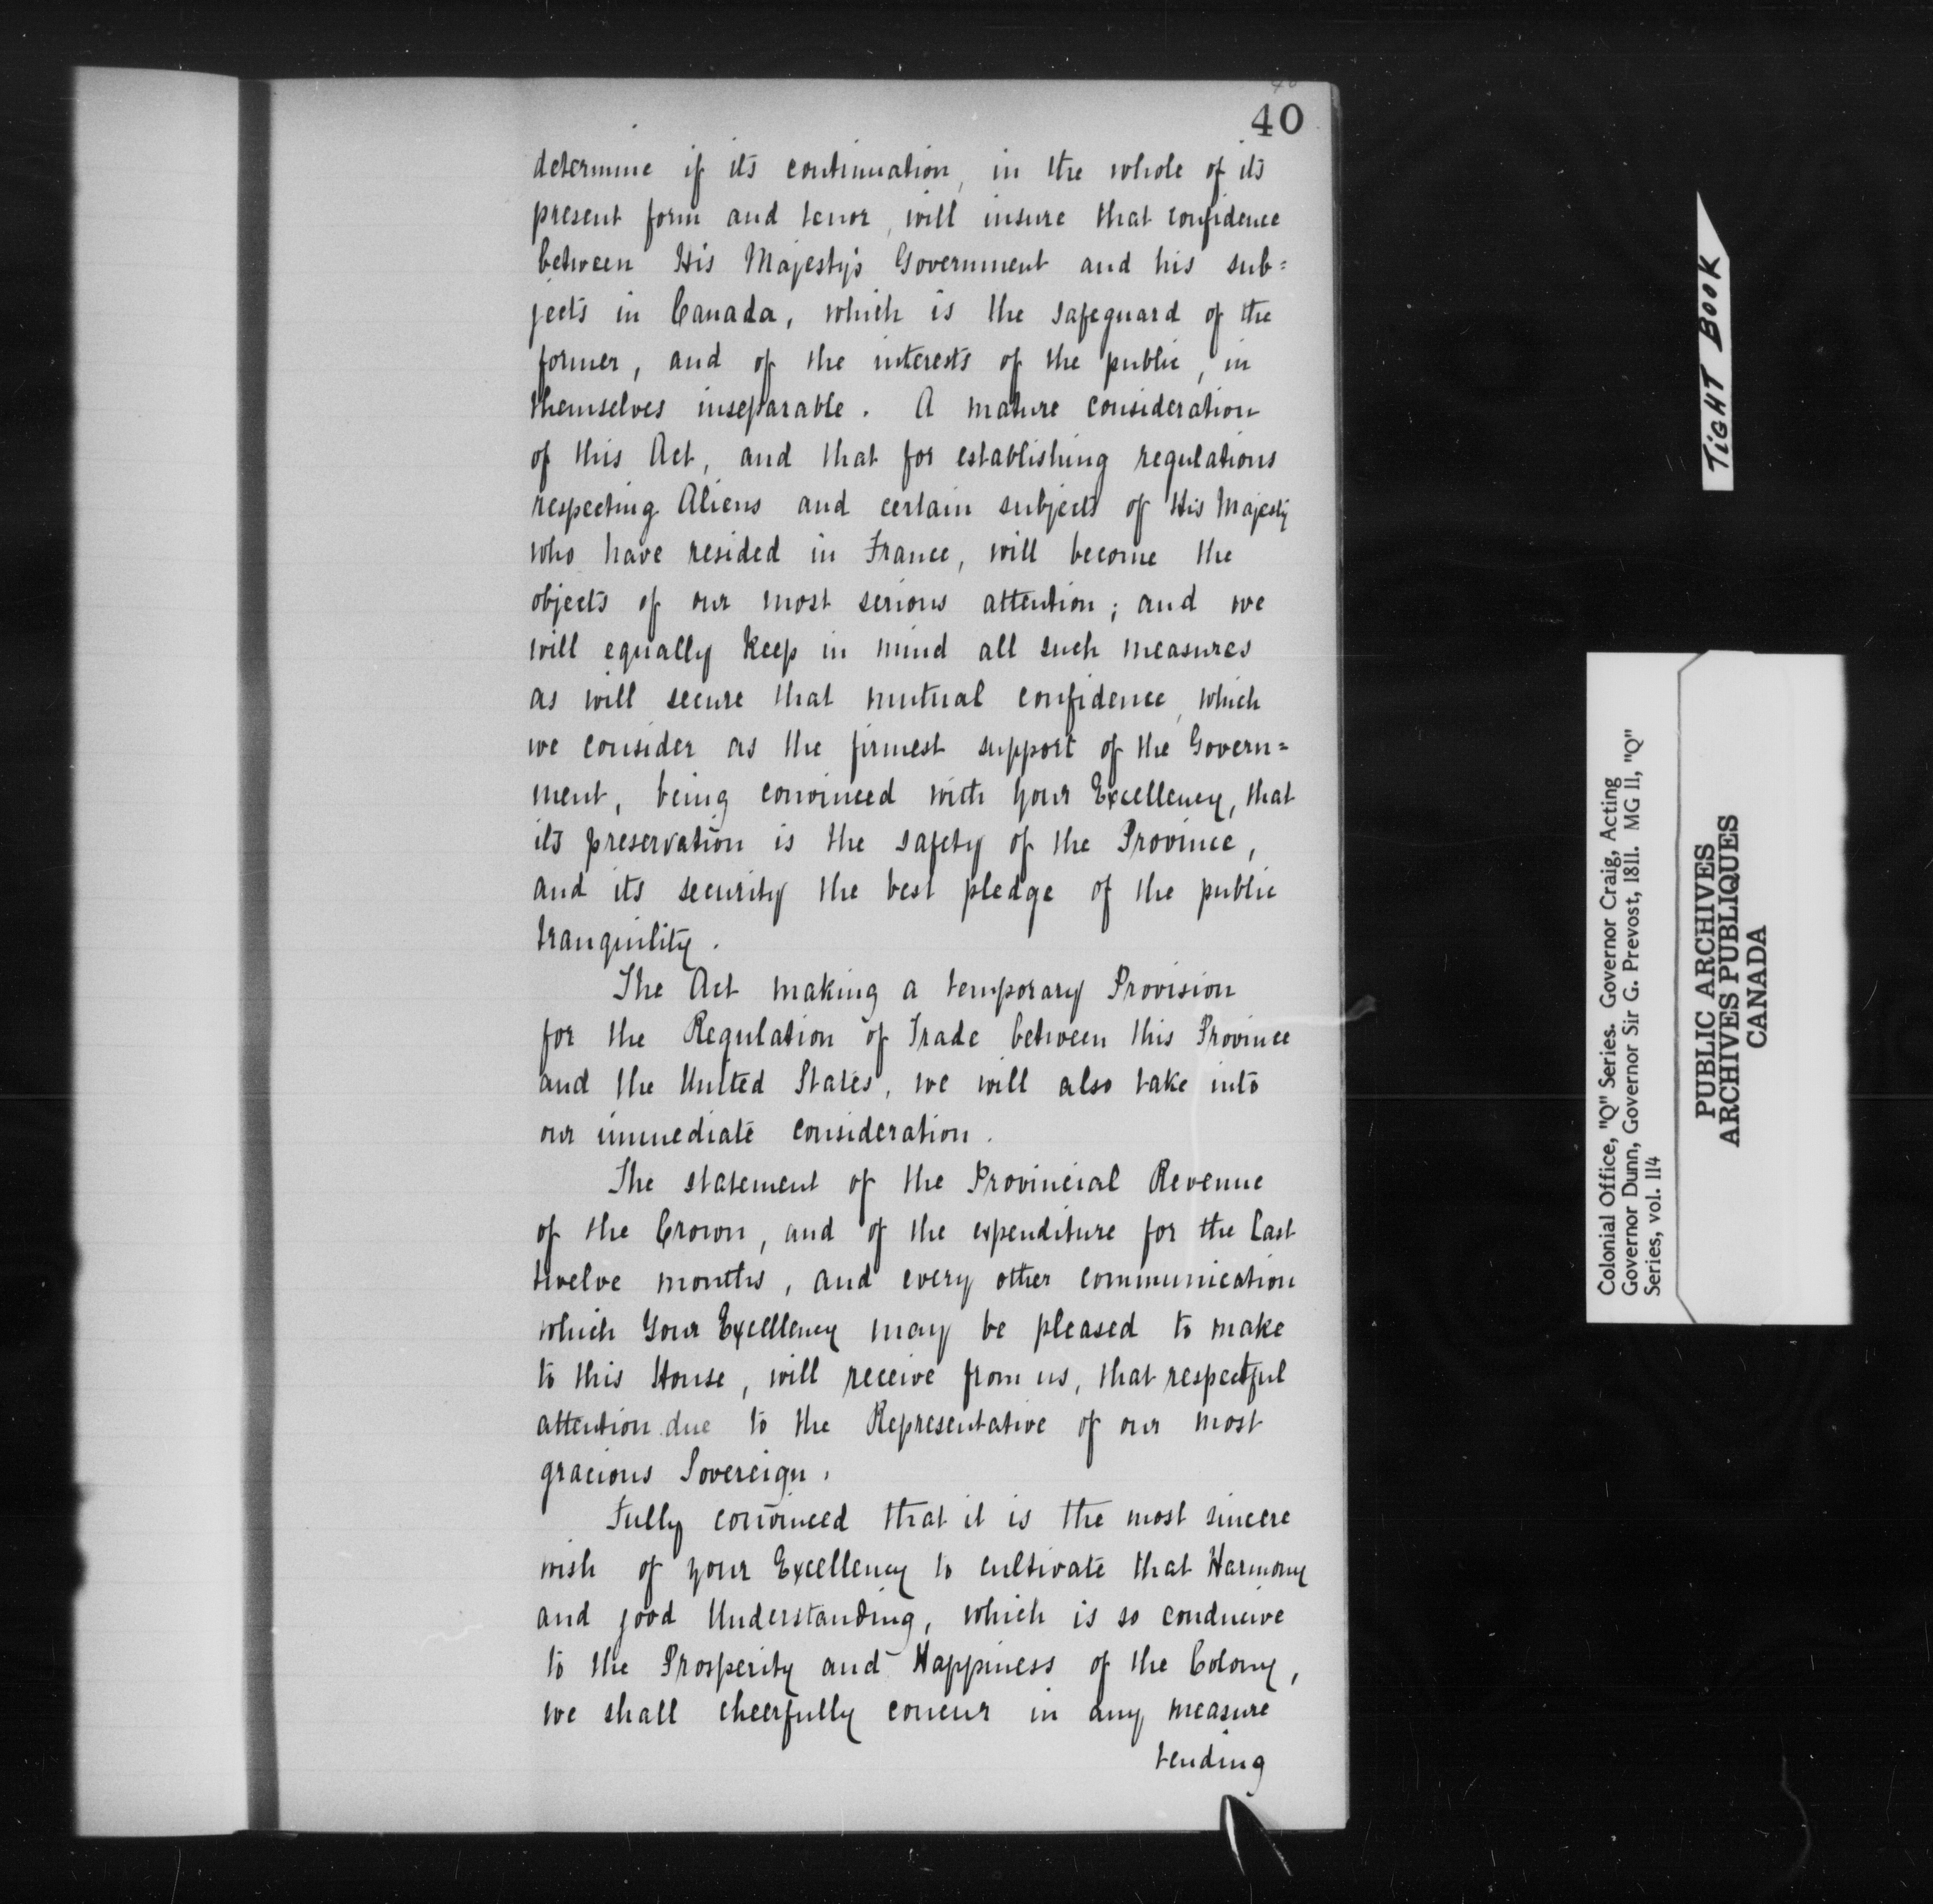 40
determine if its continuation, in the whole of its
present form and tenor, will insure that confidence
between His Majesty's Government and his sub=
jects in Canada, which is the safeguard of the
former, and of the interests of the public, in
themselves inseparable. A mature consideration
of this Act, and that for establishing regulations
respecting Aliens and certain subjects of His Majesty
who have resided in France, will become the
objects of our most serious attention; and we
will equally keep in mind all such measures
as will secure that mutual confidence, which
we consider as the firmest support of the Govern=
ment, being convinced with your Excellency, that
its preservation is the safety of the Province,
and its security the best pledge of the public
tranquility.
The Act making a temporary Provision
for the Regulation of Trade between this Province
and the United States, we will also take into
our immediate consideration.
The statement of the Provincial Revenue
of the Crown, and of the expenditure for the last
twelve months, and every other communication
which Your Excellency may be pleased to make
to this House, will receive from us, that respectful
attention due to the Representative of our most
gracious Sovereign.
Fully convinced that it is the most sincere
wish of your Excellency to cultivate that Harmony
and good Understanding, which is so conducive
to the Prosperity and Happiness of the Colony,
we shall cheerfully concur in any measure
tending
TIGHT BOOK
Colonial Office, "Q" Series. Governor Craig, Acting
Governor Dunn, Governor Sir G. Prevost, 1811. MG 11, "Q"
Series, vol. 114
PUBLIC ARCHIVES
ARCHIVES PUBLIQUES
CANADA